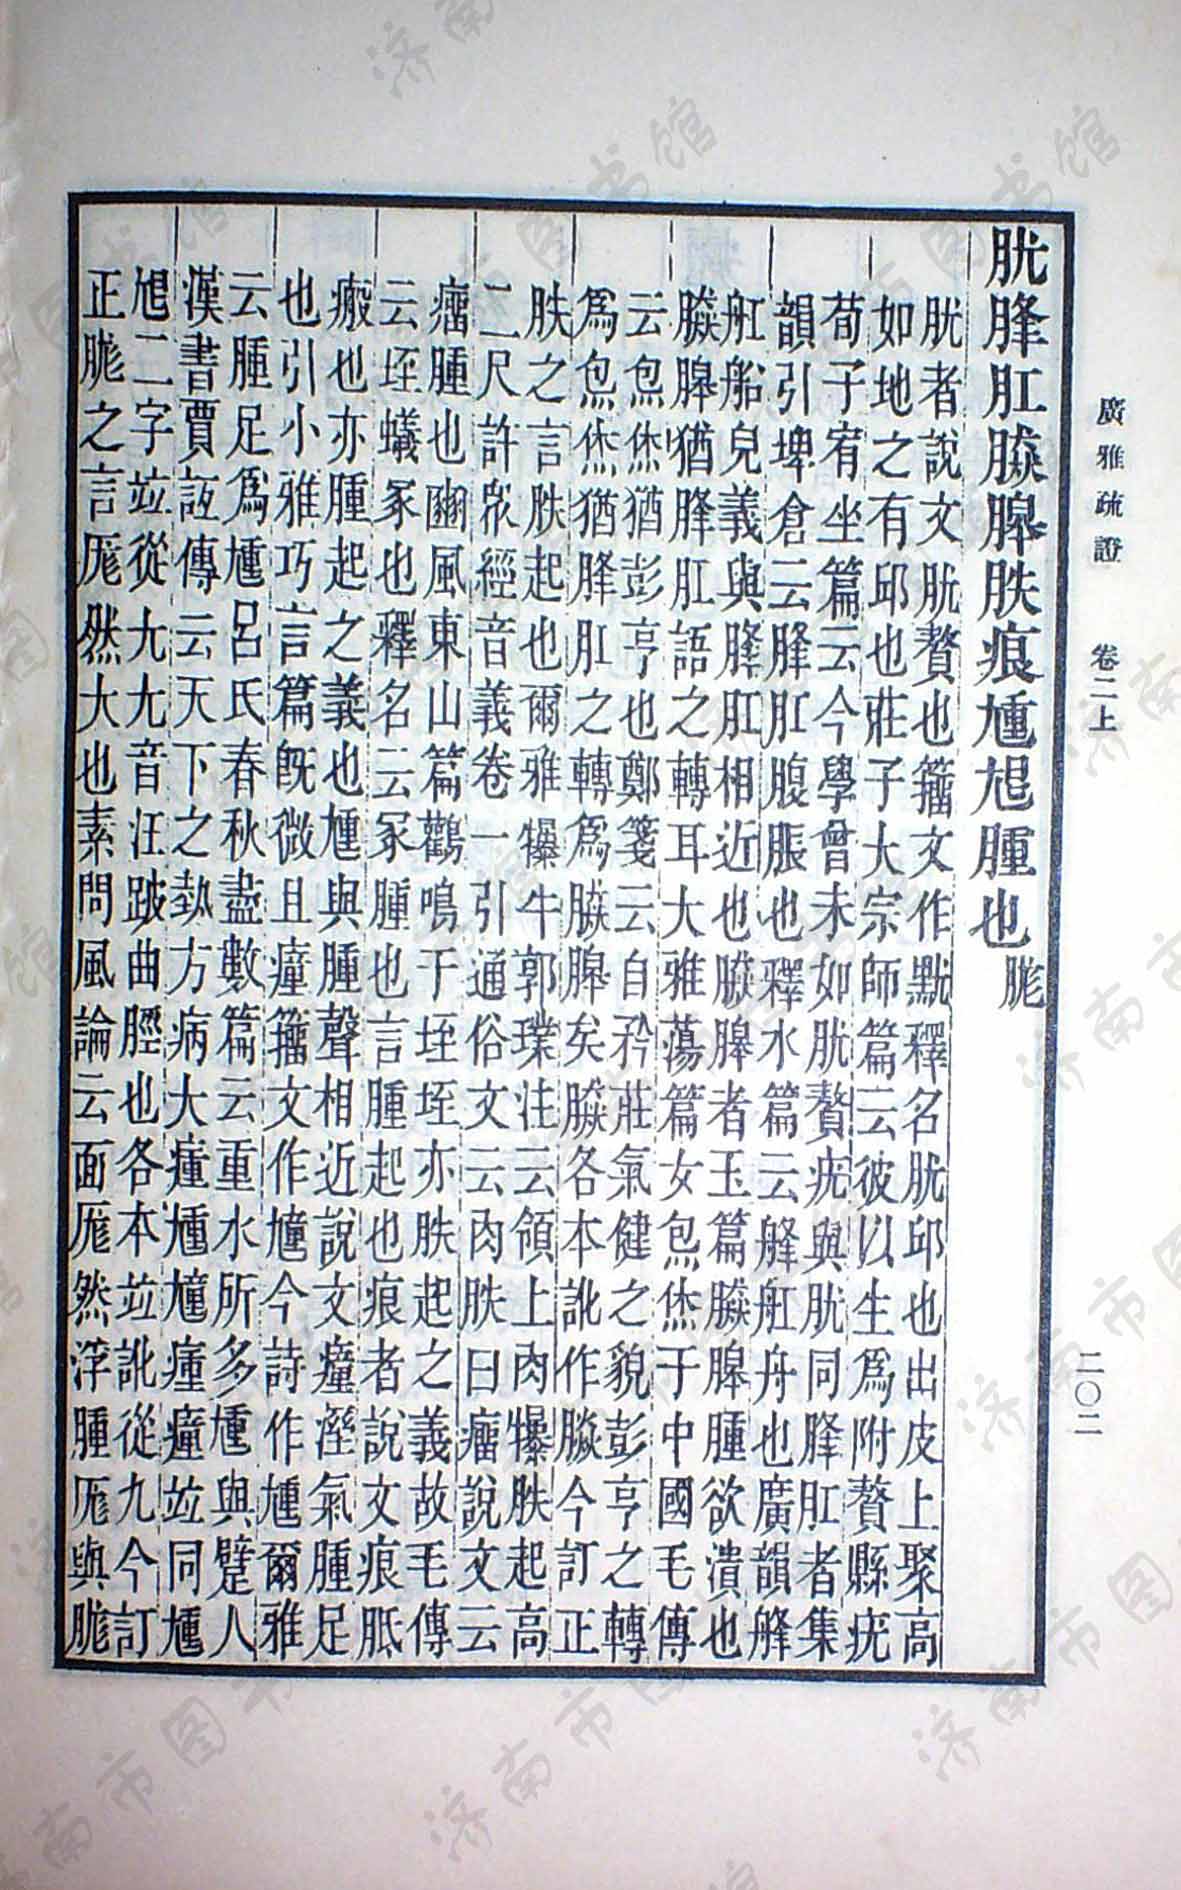 廣雅疏證　卷二上　二〇二
肬胮肛𦝫脾胅痕尰尳腫也　䏢
肬者說文肬贅也籀文作黕釋名肬邱也出皮上聚高
如地之有邱也莊子大宗師篇云彼以生爲附贅縣疣
荀子宥坐篇云今學曾未如肬贅疣與肬同胮肛者集
韻引埤倉云胮肛腹脹也釋水篇云舽舡舟也廣韻舽
舡船皃義與胮肛相近也者玉篇腫欲潰也
猶胮肛語之轉耳大雅蕩篇女炰烋于中國毛傳
云炰烋猶彭亨也鄭箋云自矜莊氣健之貌彭亨之轉
爲炰烋猶胮肛之轉爲矣各本訛作今訂正
胅之言胅起也爾雅犦牛郭璞注云領上肉犦胅起高
二尺許眾經音義卷一引通俗文云肉胅曰瘤說文云
瘤腫也豳風東山篇鸛鳴于垤垤亦胅起之義故毛傳
云垤蟻冢也釋名云冢腫也言腫起也痕者說文痕胝
瘢也亦腫起之義也尰與腫聲相近說文瘇溼氣腫足
也引小雅巧言篇旣微且瘇籀文作尰今詩作尰爾雅
云腫足爲尰呂氏春秋盡數篇云重水所多尰與躄人
漢書賈誼傳云天下之埶方病大瘇尰𡰁瘇瘇竝同尰
尳二字竝從尢尢音汪跛曲脛也各本竝訛從九今訂
正䏢之言厖然大也素問風論云面厖然浮腫厖與䏢